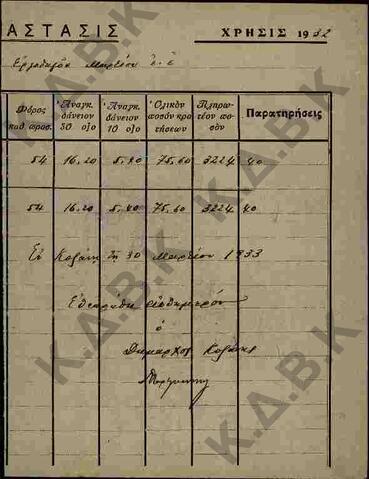 ΑΣΤΑΣΙΣ ΧΡΗΣΙΣ 1932
Μαρτίου
Φόρος καθ. προσ. Ἀναγκ. δάνειον 30 ο]ο Ἀναγκ. δάνειον 10 ο]ο Ὁλικὸν ποσὸν κρατήσεων Πληρωτέον ποσὸν Παρατηρήσεις
54 16.20 5.40 75.60 3224 40
54 16.20 5.40 75.60 3224 40
Ἐν Κοζάνῃ τῇ 30 Μαρτίου 1933
Ἐθεωρήθη αὐθημερόν
ὁ
Δήμαρχος Κοζάνης
Κ.Δ.Β.Κ